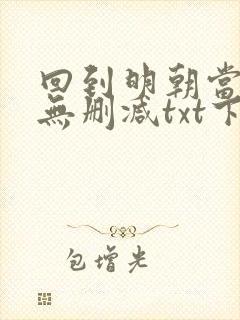 回到明朝當
無刪減txt下
包增光